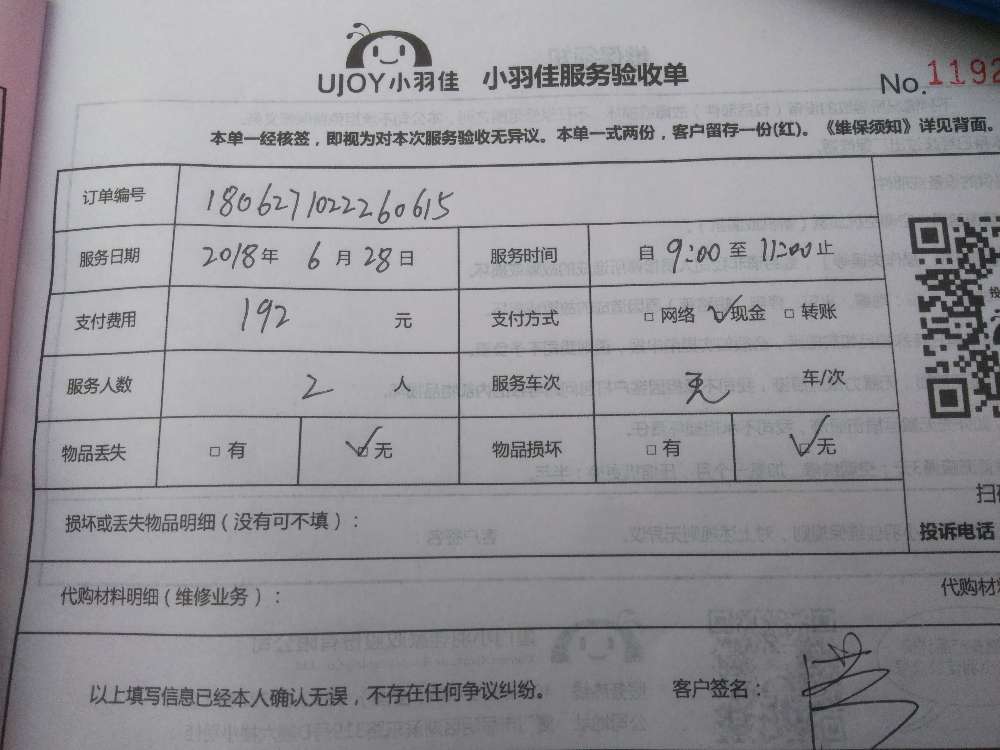 UJOY小羽佳 小羽佳服务验收单 No.1192
本单一经核签，即视为对本次服务验收无异议。本单一式两份，客户留存一份(红)。《维保须知》详见背面。
订单编号 1806271022260615
服务日期 2018年 6月28日 服务时间 自9:00至11:00止
支付费用 192 元 支付方式 □网络 ☑现金 □转账
服务人数 2 人 服务车次 无 车/次
物品丢失 □有 ☑无 物品损坏 □有 ☑无
损坏或丢失物品明细（没有可不填）：
投诉电话
代购材料明细（维修业务）： 代购材
以上填写信息已经本人确认无误，不存在任何争议纠纷。 客户签名：